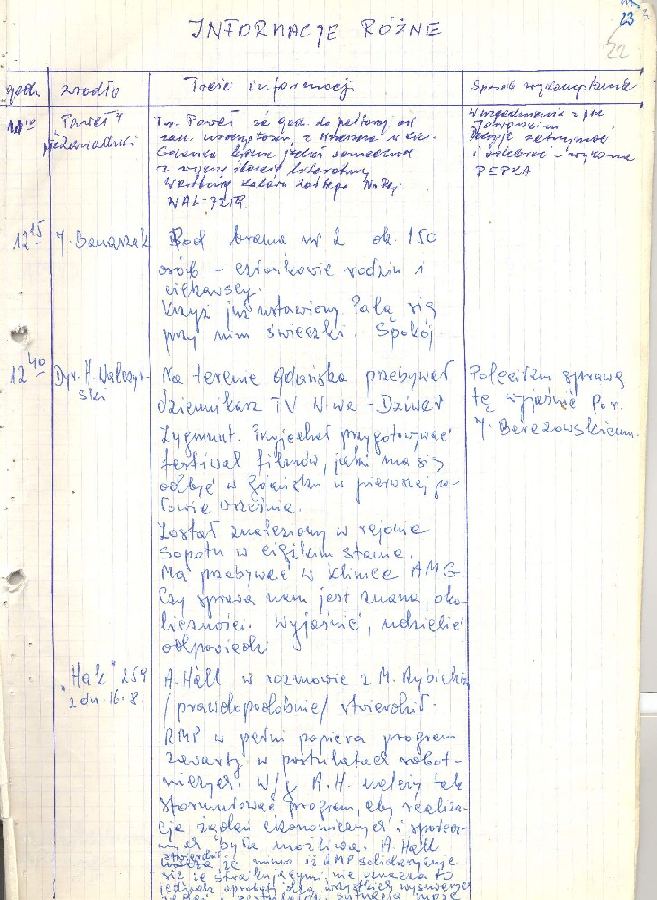 23
22
INFORMACJE RÓŻNE
godz. źródło Treść informacji Sposób wykorzystania
"Paweł"
T.w. Paweł za godz. do
Gdańska
z literatury
Wartburg koloru żółtego Nr Rej
WAL-7219
i odebrać - wykona
PEPŁA
12 15 J. Banaszak Pod bramą nr 2 ok. 150
osób - członkowie rodzin i
ciekawscy.
Krzyż już ustawiony. Palą się
przy nim świeczki. Spokój
12 40 Dyr. H. Walczyń-
ski
Na terenie Gdańska przebywał
dziennikarz TV W-wa - Dziwer
Zygmunt. Przyjechał przygotowywać
festiwal filmów, jaki ma się
odbyć w Gdańsku w pierwszej po-
łowie września.
Został znaleziony w rejonie
Sopotu w ciężkim stanie.
Ma przebywać w klinice AMG
Czy sprawa nam jest znana oko-
liczności. Wyjaśnić, udzielić
odpowiedzi
Poleciłem sprawę
tę wyjaśnić
J. Berezowskiemu.
"Hak" 259
z dn. 16.8.
A. Hall w rozmowie z M. Rybickim
/prawdopodobnie/ stwierdził.
RMP w pełni popiera program
zawarty w postulatach robot-
niczych. W/g A.H. należy tak
sformułować program, aby realiza-
cja żądań ekonomicznych i społecz-
nych była możliwa. A. Hall
stwierdził
że mimo iż RMP solidaryzuje
się ze strajkującymi nie oznacza to
jednak aprobaty dla wszystkich wysuwanych